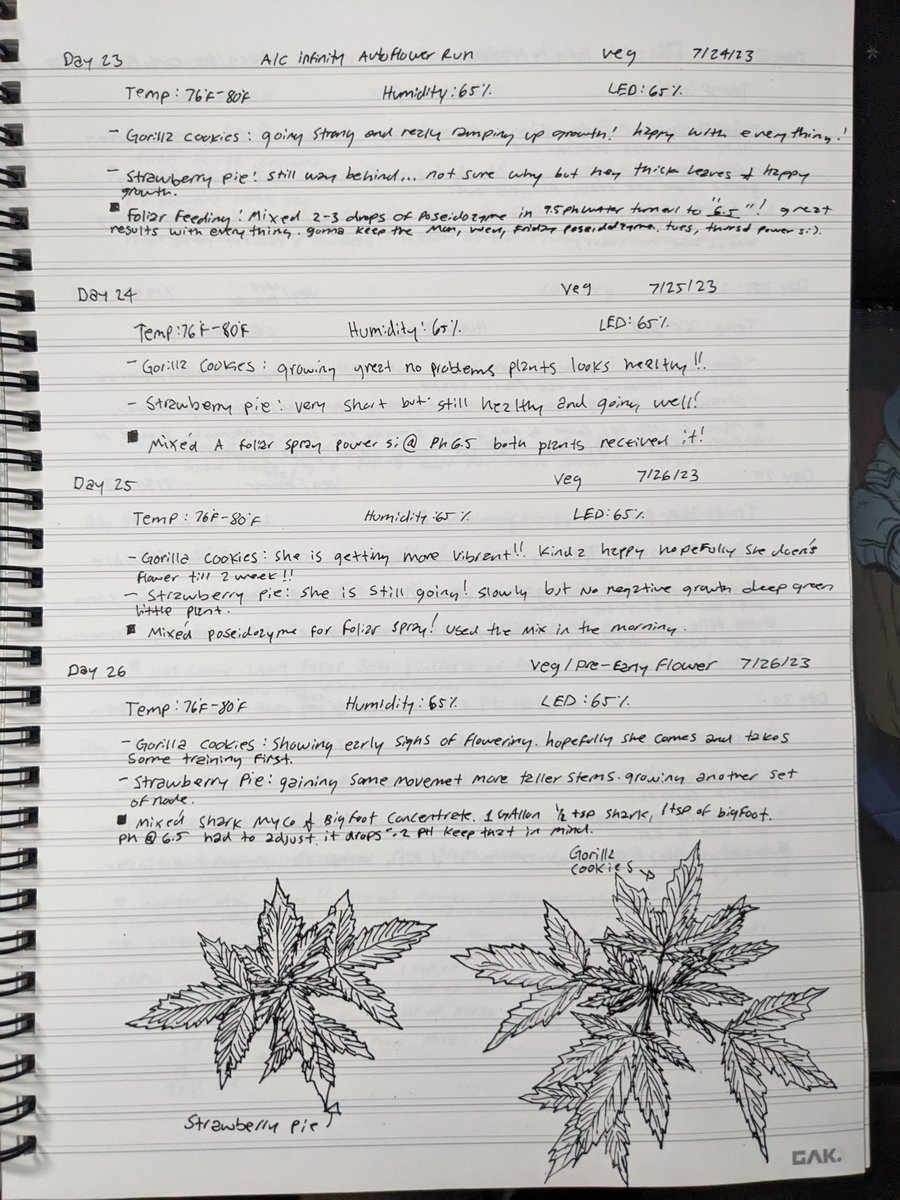 Day 23 A/C infinity AutoFlower Run veg 7/24/23
Temp: 76°F-80°F Humidity: 65% LED: 65%
- Gorilla cookies: going strong and really ramping up growth! happy with everything!
- Strawberry pie! still way behind... not sure why but hey thick leaves & happy
growth.
■ Foliar Feeding! Mixed 2-3 drops of Poseidozyme in 9.5 ph water turned to "6.5"! great
results with everything. gonna keep the Mon, Wed, Friday Poseidozyme. tues, thursd power si).
Day 24 veg 7/25/23
Temp: 76°F-80°F Humidity: 65% LED: 65%
- Gorilla cookies: growing great no problems plants looks healthy!!
- Strawberry pie: very short but still healthy and going well!
■ Mixed A foliar spray power si @ Ph 6.5 both plants received it!
Day 25 veg 7/26/23
Temp: 76°F-80°F Humidity: 65% LED: 65%
- Gorilla cookies: she is getting more vibrant!! Kinda happy hopefully she
flower till 2 week!!
- Strawberry pie: she is still going! slowly but no negative growth deep green
little plant.
■ Mixed poseidozyme for foliar spray! used the mix in the morning.
Day 26 Veg/Pre-Early Flower 7/26/23
Temp: 76°F-80°F Humidity: 65% LED: 65%
- Gorilla cookies: Showing early signs of flowering. hopefully she comes and takes
some training first.
- Strawberry Pie: gaining some movemet more taller stems. growing another set
of node.
■ Mixed Shark Myco & Bigfoot Concentrate. 1 Gallon 1/2 tsp shark, 1 tsp of bigfoot.
Ph @ 6.5 had to adjust it drops -.2 PH keep that in mind.
Gorilla
cookies
Strawberry Pie
GAK.